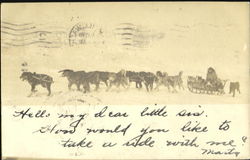 Hello my dear little sis.
How would you like to
take a ride with me?